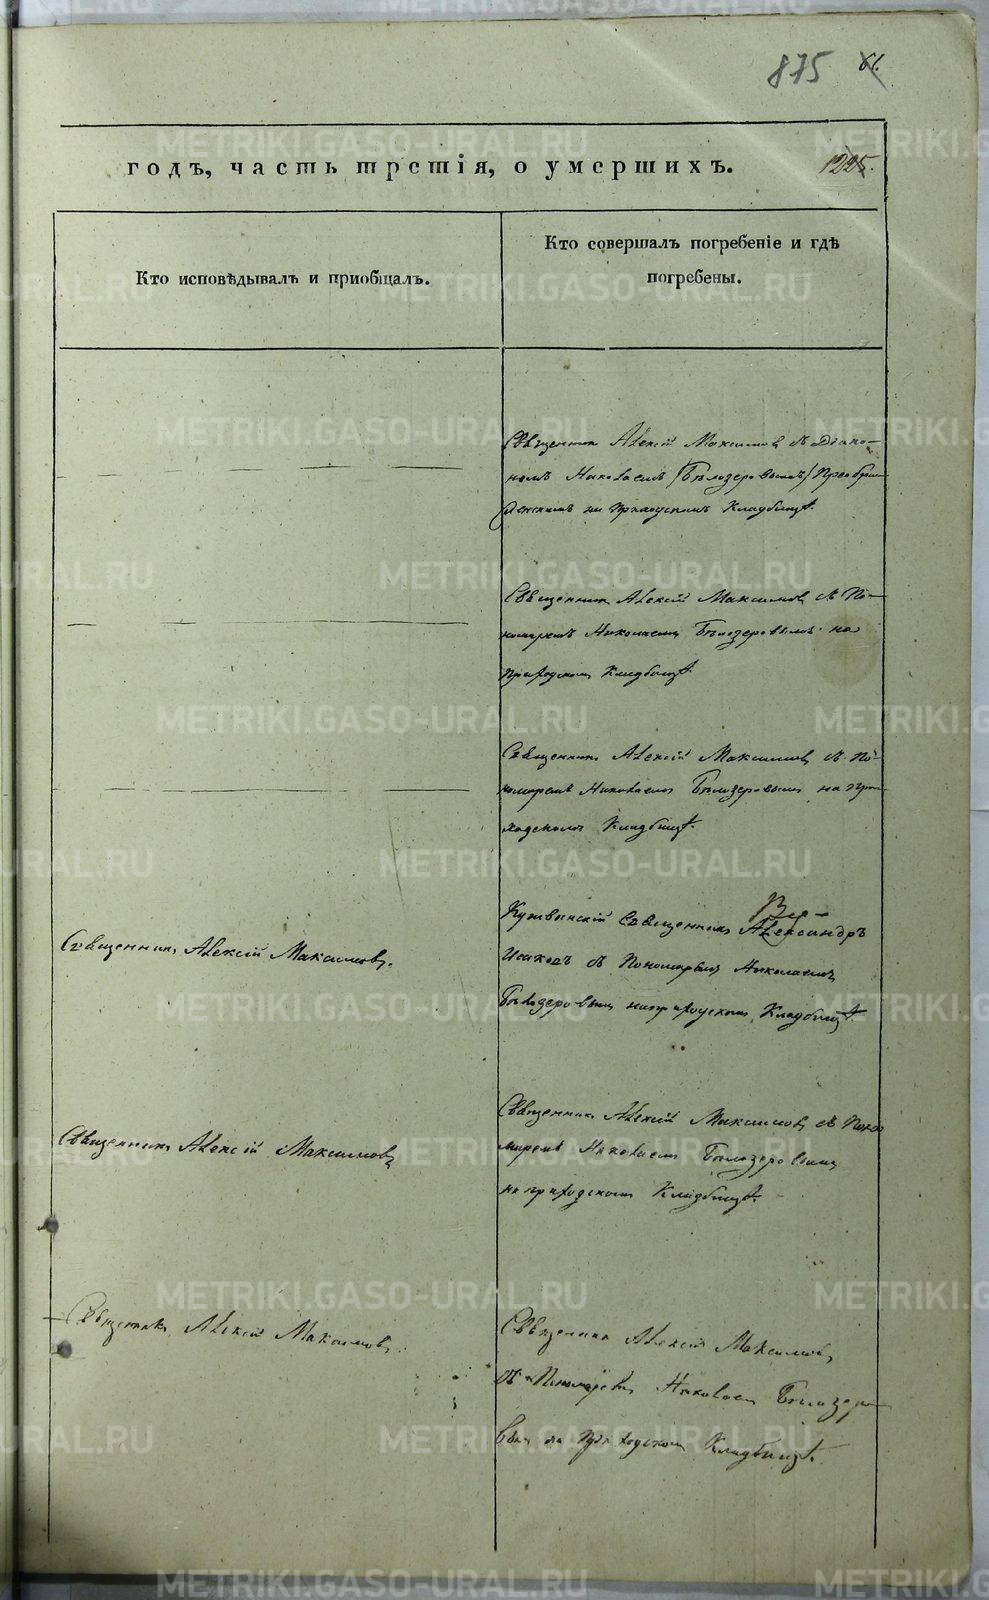 875 61.
годъ, часть третія, о умершихъ. 1225.
Кто исповѣдывалъ и приобщалъ.
Кто совершалъ погребеніе и гдѣ
погребены.
Священникъ Алексій Максимовъ съ Діако-
номъ Николаемъ /Бѣлозеровымъ/
на Приходскомъ Кладбищѣ.
Священникъ Алексій Максимовъ съ По-
номаремъ Николаемъ Бѣлозеровымъ на
приходскомъ Кладбищѣ.
Священникъ Алексій Максимовъ съ По-
номаремъ Николаемъ Бѣлозеровымъ на при-
ходскомъ Кладбищѣ.
Священникъ Алексій Максимовъ.
Кушвинскій Священникъ Александръ
съ Пономаремъ Николаемъ
Бѣлозеровымъ на приходскомъ Кладбищѣ.
Священникъ Алексій Максимовъ
Священникъ Алексій Максимовъ съ Поно-
маремъ Николаемъ Бѣлозеровымъ
на приходскомъ Кладбищѣ.
Священникъ Алексій Максимовъ.
Священникъ Алексій Максимовъ
съ Пономаремъ Николаемъ Бѣлозеро-
вымъ на Приходскомъ Кладбищѣ.
METRIKI.GASO-URAL.RU